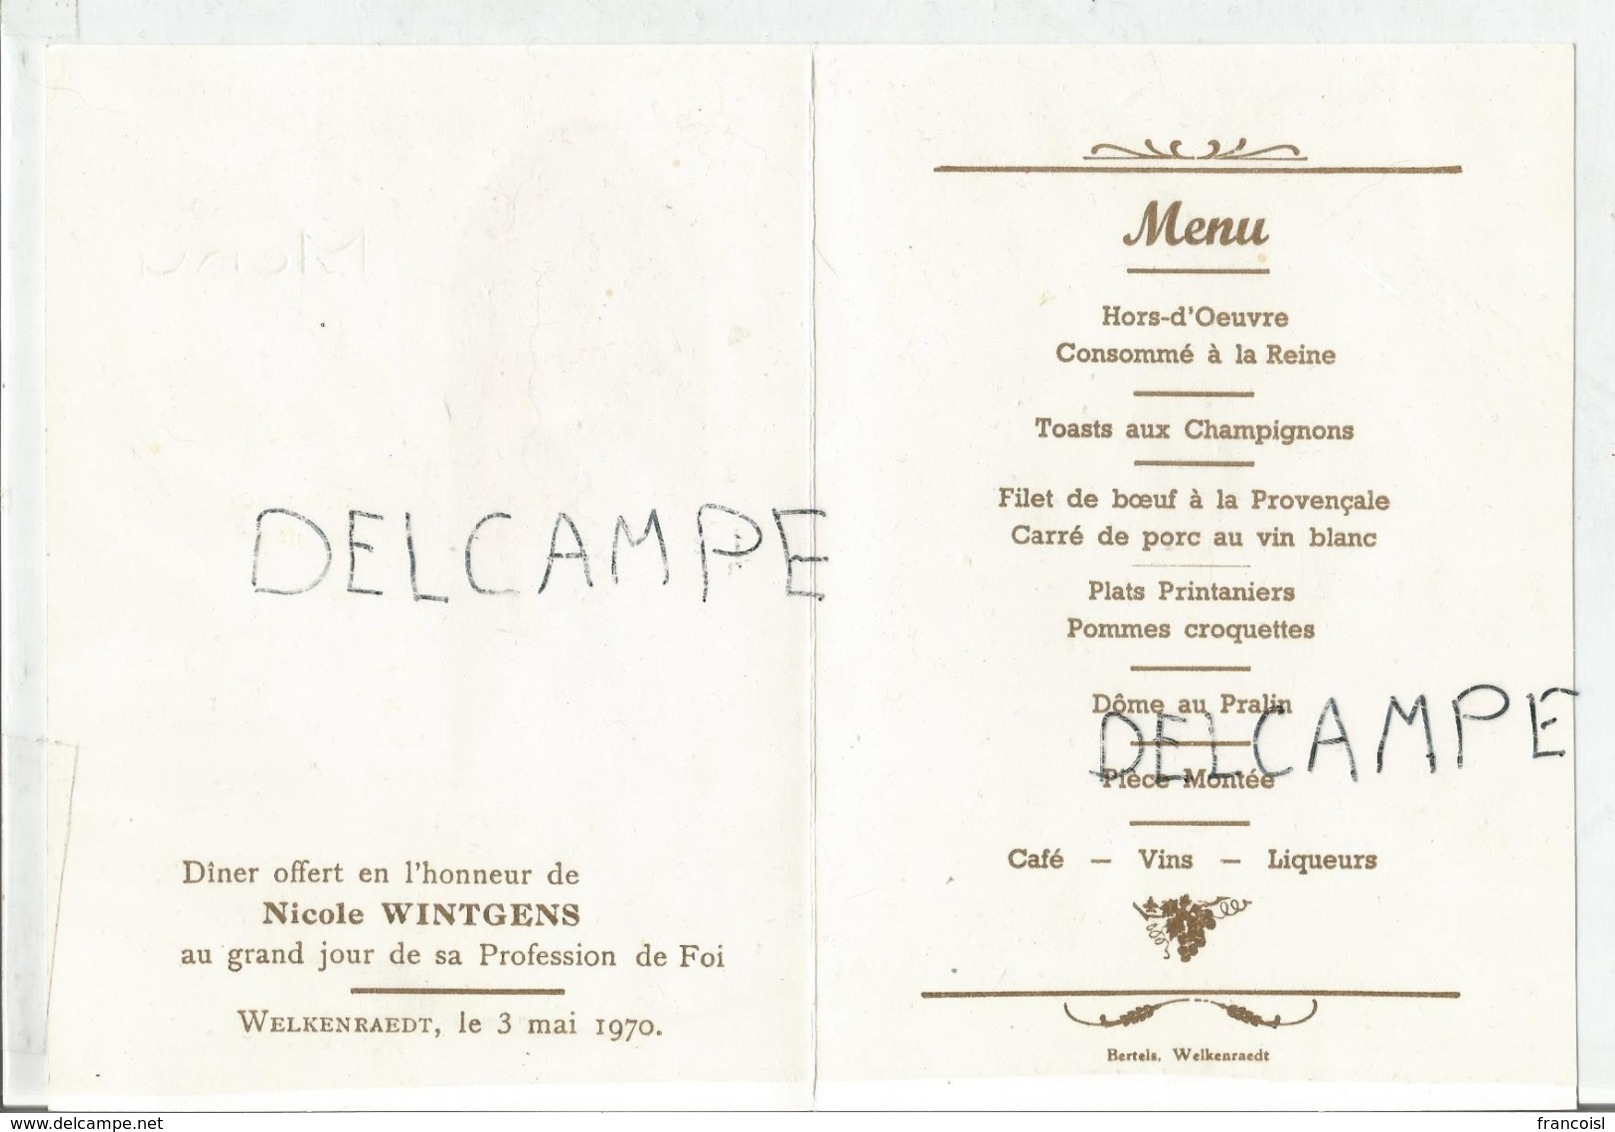 Menu
DELCAMPE
Dîner offert en l'honneur de
Nicole WINTGENS
au grand jour de sa Profession de Foi
WELKENRAEDT, le 3 mai 1970.
Menu
Hors-d'Oeuvre
Consommé à la Reine
Toasts aux Champignons
Filet de bœuf à la Provençale
Carré de porc au vin blanc
Plats Printaniers
Pommes croquettes
Dôme au Pralin
DELCAMPE
Pièce Montée
Café — Vins — Liqueurs
Bertels, Welkenraedt
www.delcampe.net
francoisl